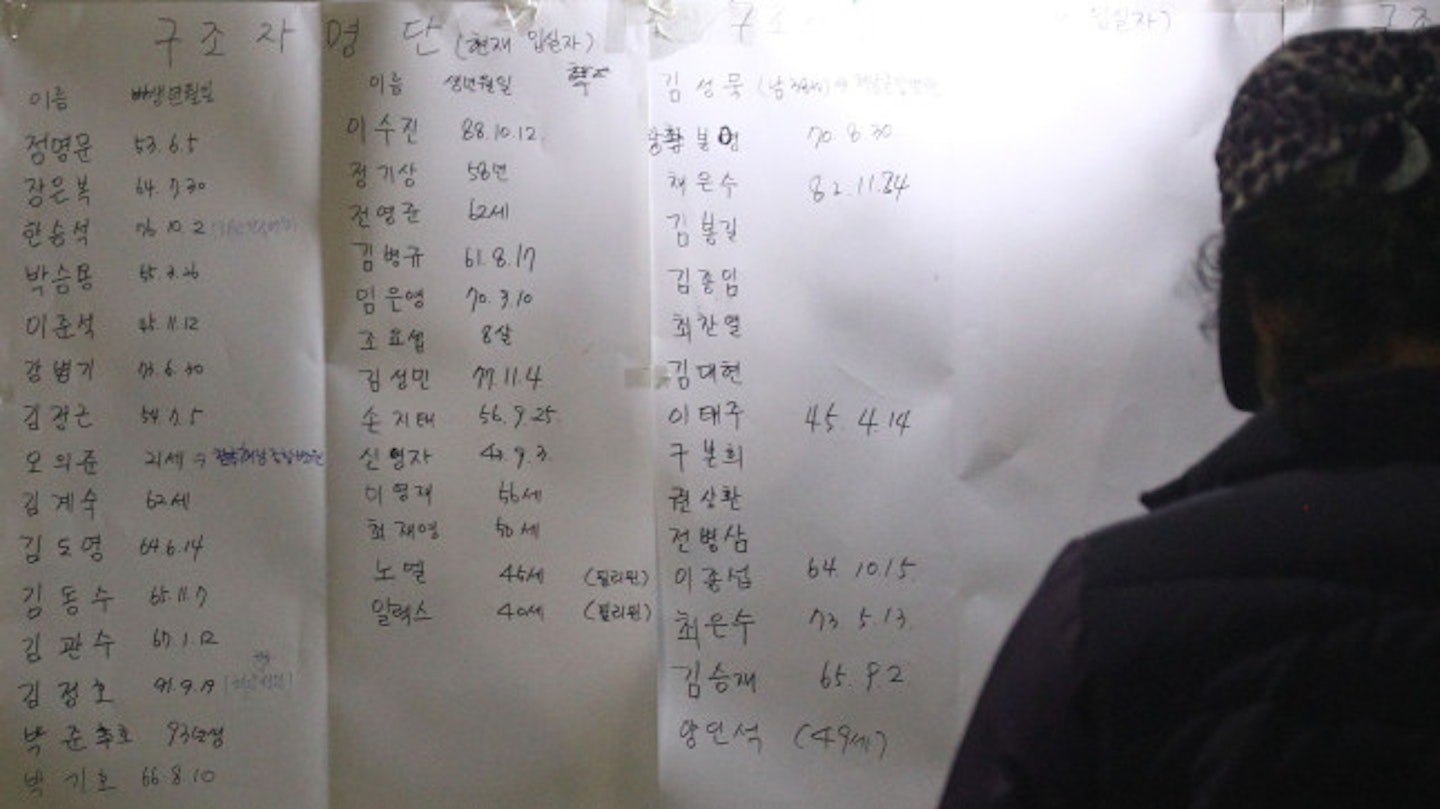 구조자 명단 (현재 입실자)
이름 생년월일
정영문 53.6.5
장은복 64.7.30
한승석 76.10.2
박승용 55.3.26
이준석 45.11.12
강병기 73.6.30
김정근 54.7.5
오의준 21세 →
김계숙 62세
김도영 64.6.14
김동수 65.11.7
김관수 67.1.12
김정호 91.9.19
박준호 93년생
박기호 66.8.10
이름 생년월일
이수진 88.10.12
정기상 58년
전영준 62세
김병규 61.8.17
임은영 70.3.10
조요셉 8살
김성민 77.11.4
손지태 56.9.25
신영자 43.9.3
이영재 56세
최재영 50세
노엘 45세 (필리핀)
알렉스 40세 (필리핀)
구조 입실자)
김성묵 (남
70.8.30
채은수 82.11.24
김봉길
김종임
최찬열
김대현
이태주 45.4.14
구본희
권상환
전병삼
이종섭 64.10.15
최은수 73.5.13
김승재 65.9.2
양인석 (49세)
구조